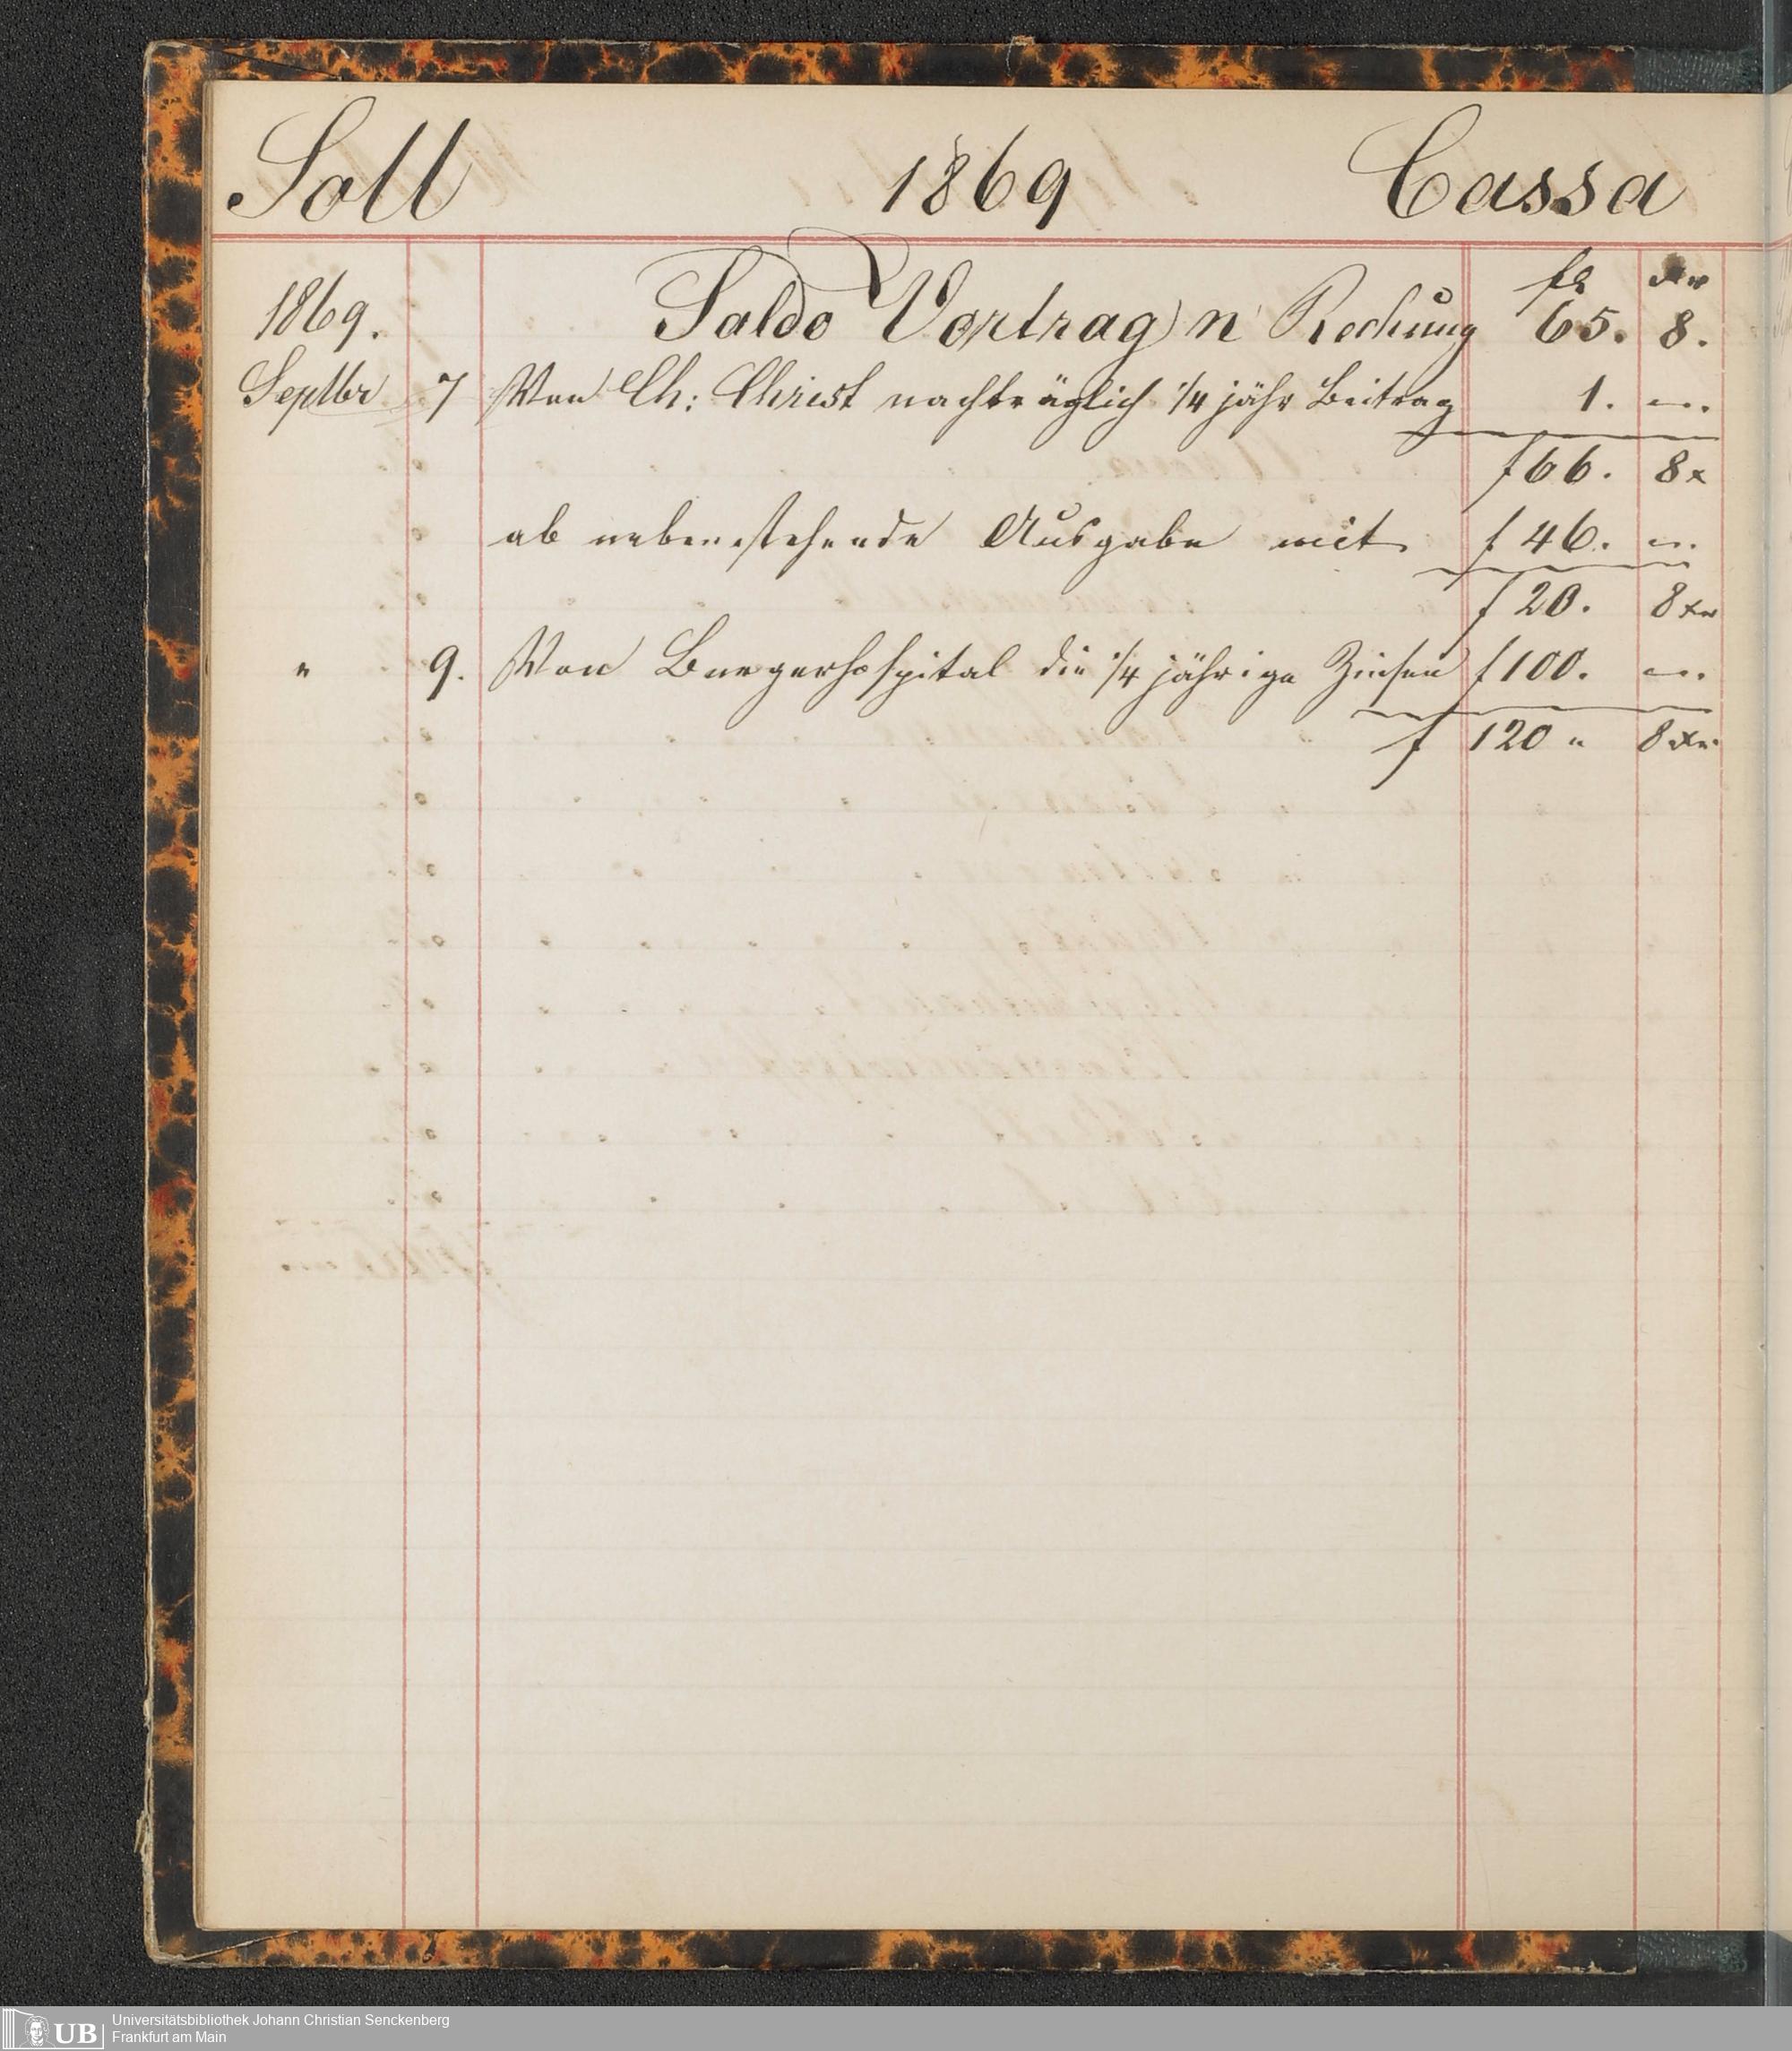 Soll 1869 Cassa
fl xr
1869. Saldo Vortrag n Rechnung 65. 8.
Septbr 7 Von Ch: Christ nachträglich 1/4 jähr Beitrag 1. –.
f 66. 8 x
ab nebenstehende Ausgabe mit f 46. –.
f 20. 8 xr
" 9. Von Burgerhospital die 1/4 jährige Zinsen f 100. –.
f 120 " 8 xr.
UB
Universitätsbibliothek Johann Christian Senckenberg
Frankfurt am Main